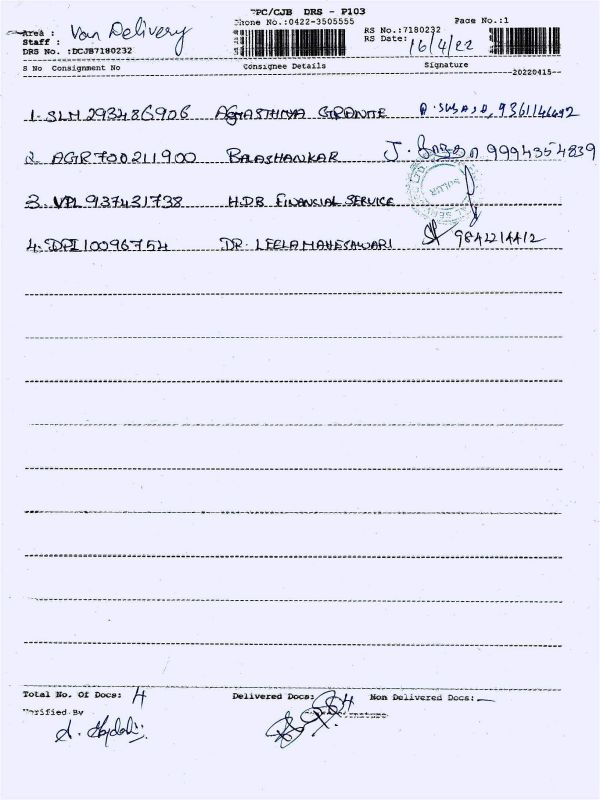 TPC/CJB DRS - P103
Area : Van Delivery Phone No.:0422-3505555 RS No.:7180232 Page No.:1
Staff : RS Date: 16/4/22
DRS No. :DCJB7180232
S No Consignment No Consignee Details Signature
--20220415--
1. SLM 293486906 AGASTHIYA GRANITE 9361146492
2. AGR 700211900 BALASHANKAR J. 9994354839
3. VPL 937431738 H.D.B FINANCIAL SERVICE SULUR
4. DPI 10096754 DR. LEELA MAHESHWARI 9842214412
Total No. Of Docs: 4 Delivered Docs: 4 Non Delivered Docs: —
Verified By Signature